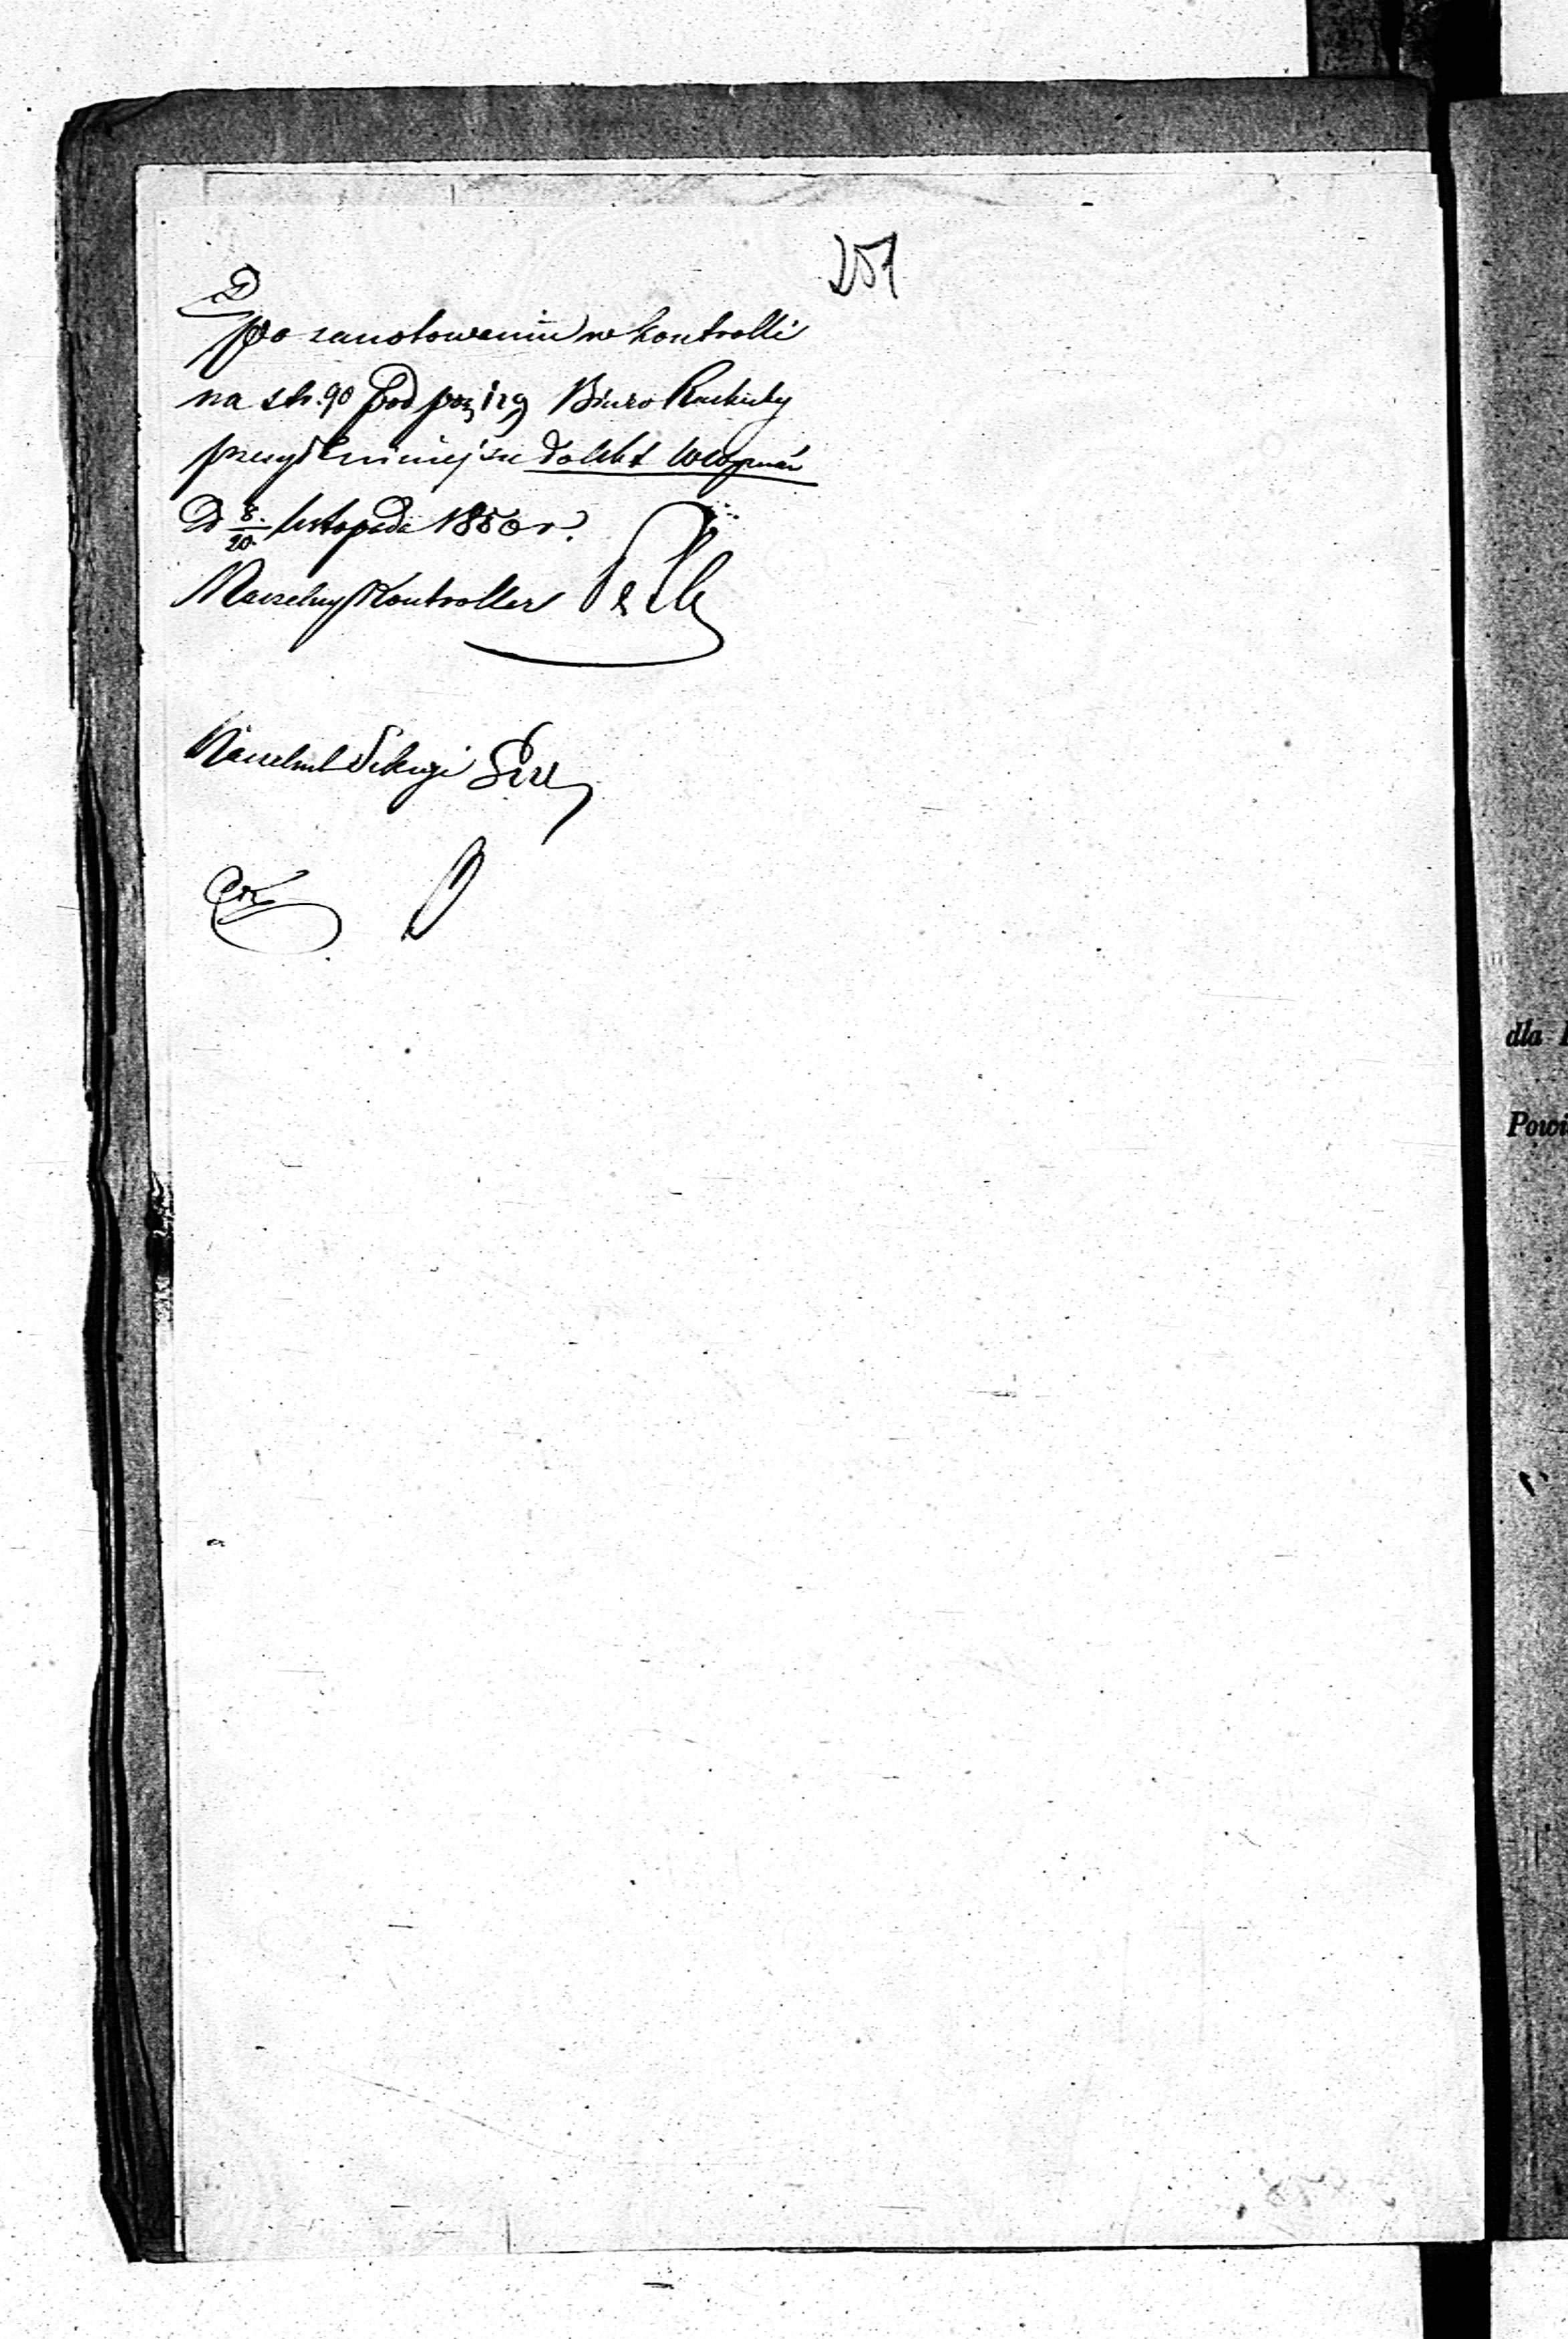 251
Po zanotowaniu w kontrolli
na str. 90 pod poz 129 Biuro Rachuby
niniejsze do Akt
D 8/20 listopada 1850 r.
Naczelny Kontroller
Naczelnik Sekcyi
dla
Powi